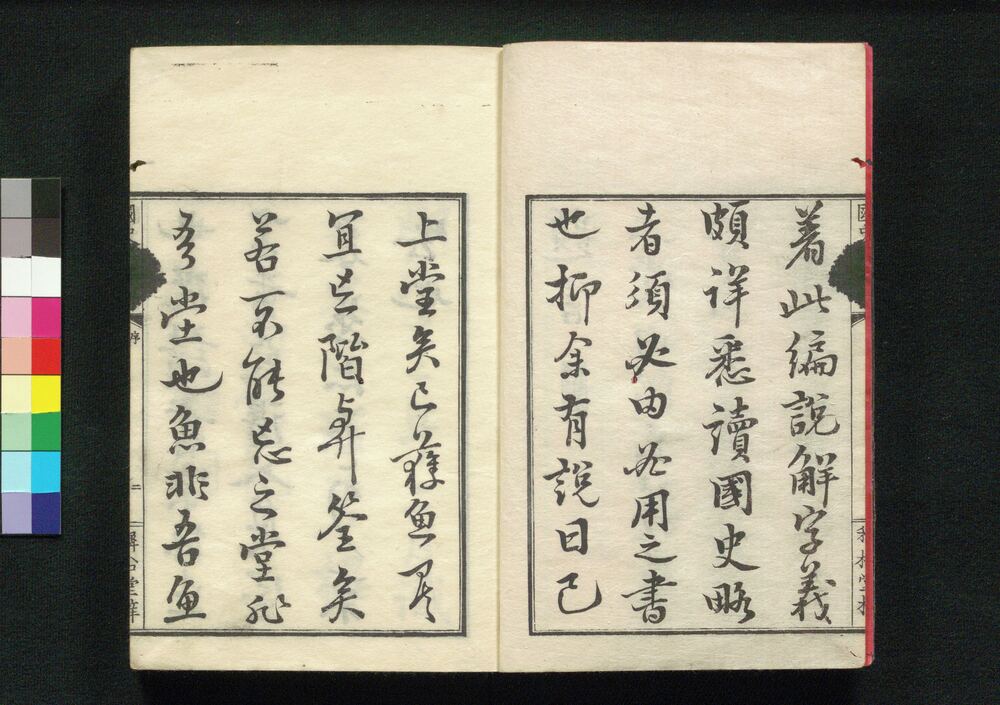 著此編說解字義
頗詳悉讀國史略
者須必由必用之書
也抑余有說曰已
上堂矣已獲魚
宜亡階弃筌矣
若不能忘之堂非
吾堂也魚非吾魚
序
二